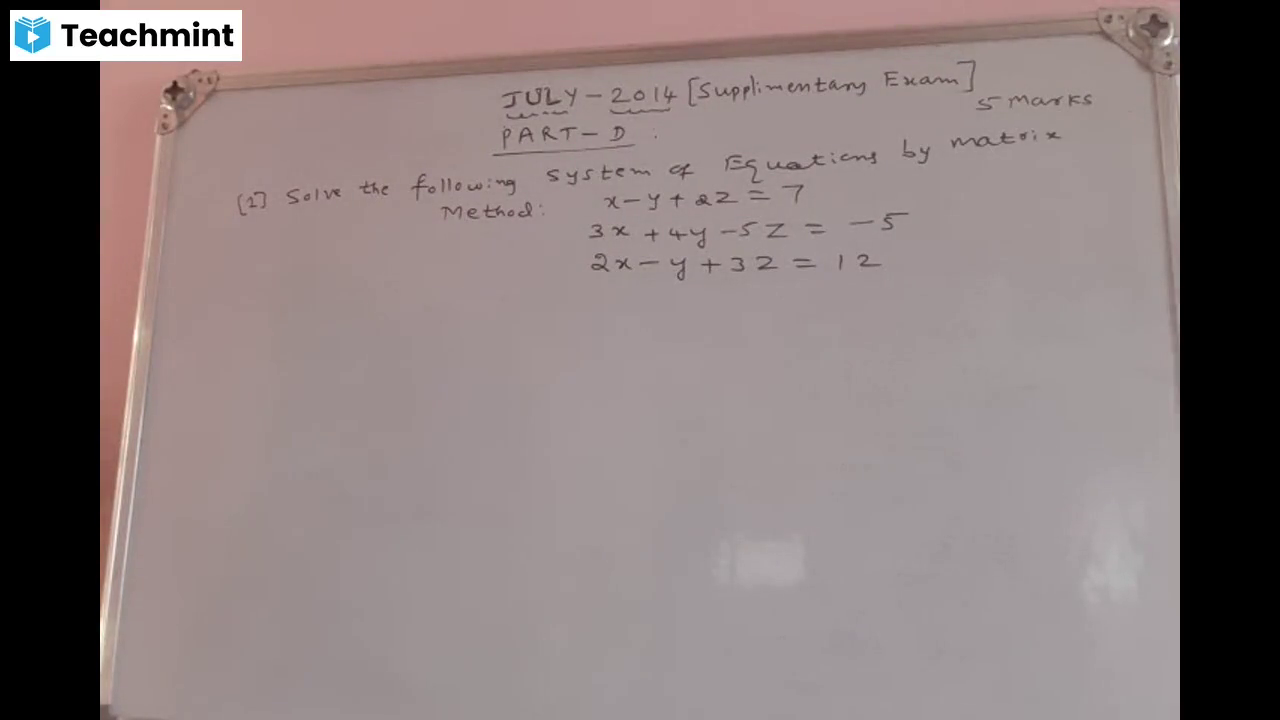 Teachmint
JULY - 2014 [Supplimentary Exam]
5 Marks
PART - D :
[1] Solve the following system of Equations by matrix
Method: x - y + 2z = 7
3x + 4y - 5z = -5
2x - y + 3z = 12